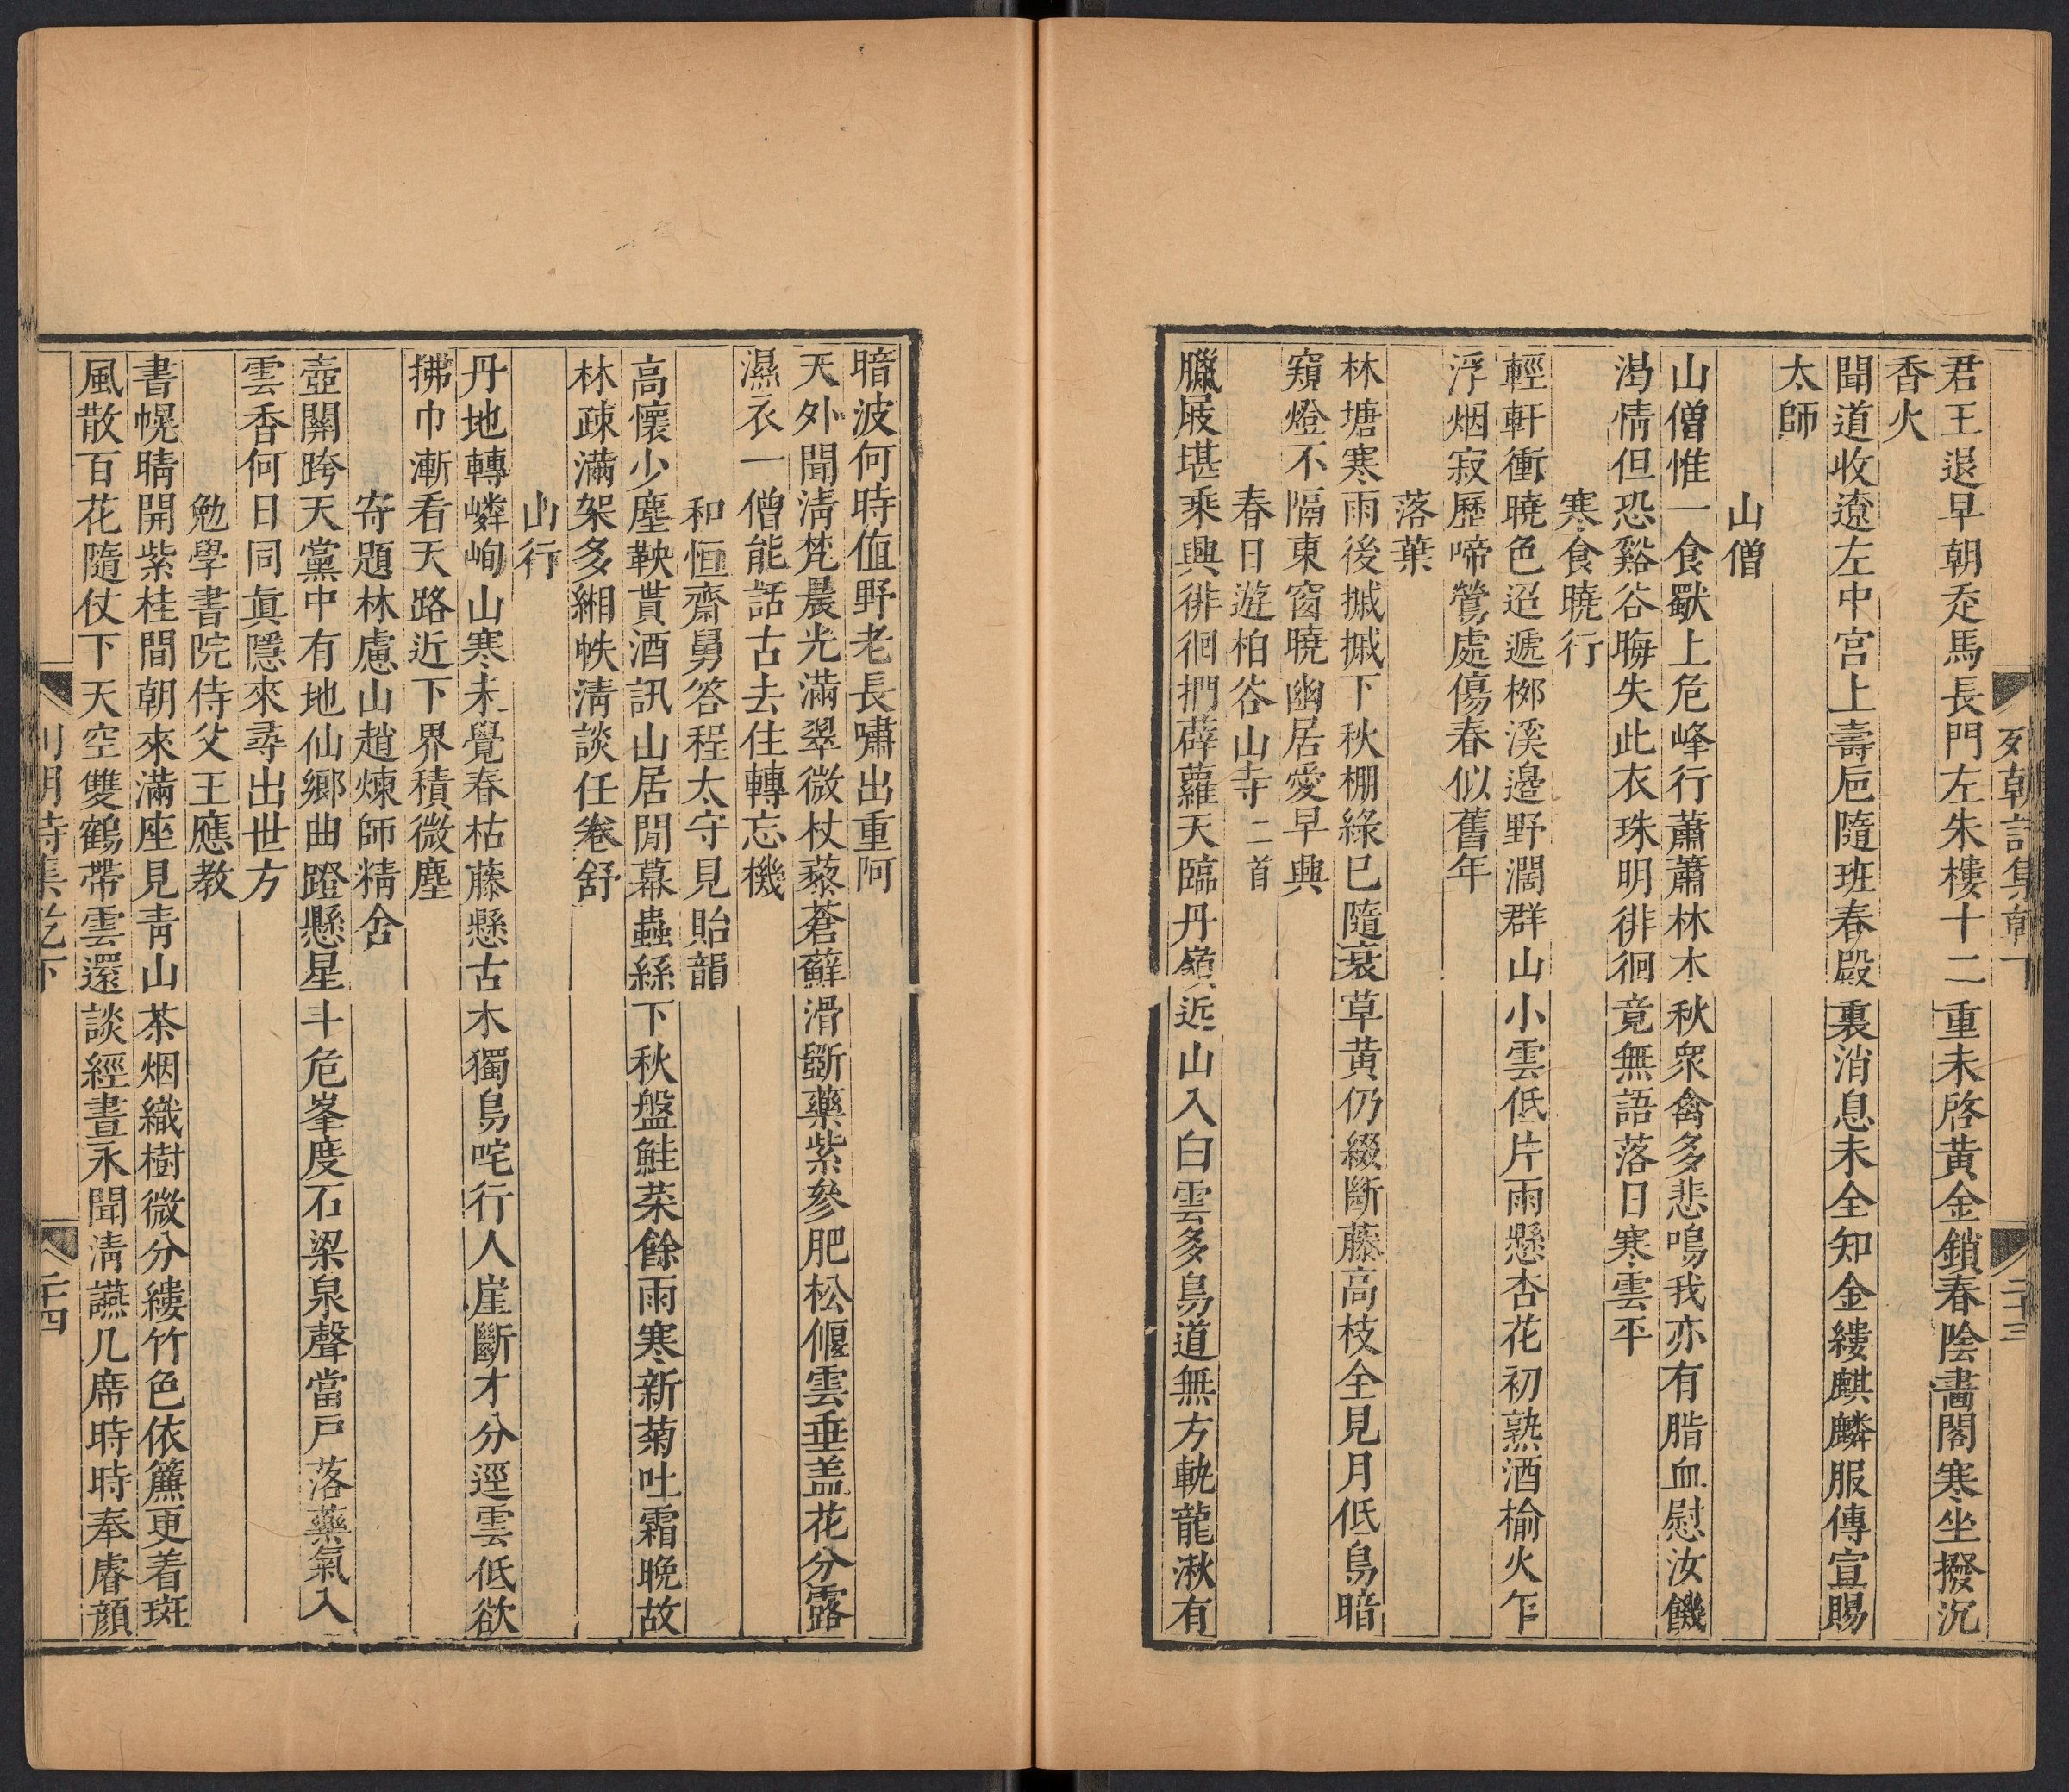 君王退早朝走馬長門左朱樓十二重未啓黃金鎖春陰畵閣寒坐撥沉
香火
聞道收遼左中宫上壽巵隨班春殿裏消息未全知金縷麒麟服傳宣賜
太師
山僧
山僧惟一食獸上危峰行蕭蕭林木秋衆禽多悲鳴我亦有脂血慰汝饑
渴情但恐谿谷晦失此衣珠明徘徊竟無語落日寒雲平
寒食曉行
輕軒衝曉色迢遞桞溪邉野濶群山小雲低片雨懸杏花初熟酒榆火乍
浮烟寂歷啼鶯處傷春似舊年
落葉
林塘寒雨後摵摵下秋棚綠巳隨衰草黄仍綴斷藤高枝全見月低鳥暗
窺燈不隔東窗曉幽居愛早興
春日遊柏谷山寺二首
臘屐堪乘興徘徊捫薜蘿天臨丹嶺近山入白雲多鳥道無方軌龍湫有
列朝詩集乾下
二十三
暗波何時値野老長嘯出重阿
天外聞淸梵晨光滿翠微杖藜蒼蘚滑斸藥紫參肥松偃雲垂盖花分露
濕衣一僧能話古去住轉忘機
和恒齋舅答程太守見貽韻
高懷少塵鞅貰酒訊山居閒幕蟲絲下秋盤鮭菜餘雨寒新菊吐霜晚故
林疎滿架多緗帙淸談任卷舒
山行
丹地轉嶙峋山寒未覺春枯藤懸古木獨鳥咤行人崖斷才分逕雲低欲
拂巾漸看天路近下界積微塵
寄題林慮山趙煉師精舍
壺關跨天黨中有地仙鄉曲磴懸星斗危峯度石梁泉聲當戶落藥氣入
雲香何日同眞隱來尋出世方
勉學書院侍父王應教
書幌晴開紫桂間朝來滿座見靑山茶烟織樹微分縷竹色依簾更着斑
風散百花隨仗下天空雙鶴帶雲還談經晝永聞淸讌几席時時奉睿顔
列朝詩集乾下
二十四